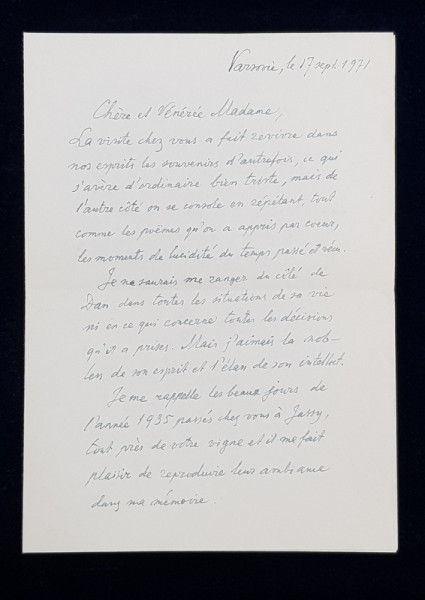 Varsovie, le 17 sept. 1971
Chère et Vénérée Madame,
La visite chez vous a fait revivre dans
nos esprits les souvenirs d'autrefois, ce qui
s'avère d'ordinaire bien triste, mais de
l'autre côté on se console en répétant, tout
comme les poèmes qu'on a appris par coeur,
les moments de lucidité du temps passé et vécu.
Je ne saurais me ranger du côté de
Dan dans toutes les situations de sa vie
ni en ce qui concerne toutes les décisions
qu'il a prises. Mais j'aimais la nob-
less de son esprit et l'élan de son intellect.
Je me rappelle les beaux jours de
l'année 1935 passés chez vous à Jassy,
tout près de votre vigne et il me fait
plaisir de reproduire leur ambiance
dans ma mémoire.